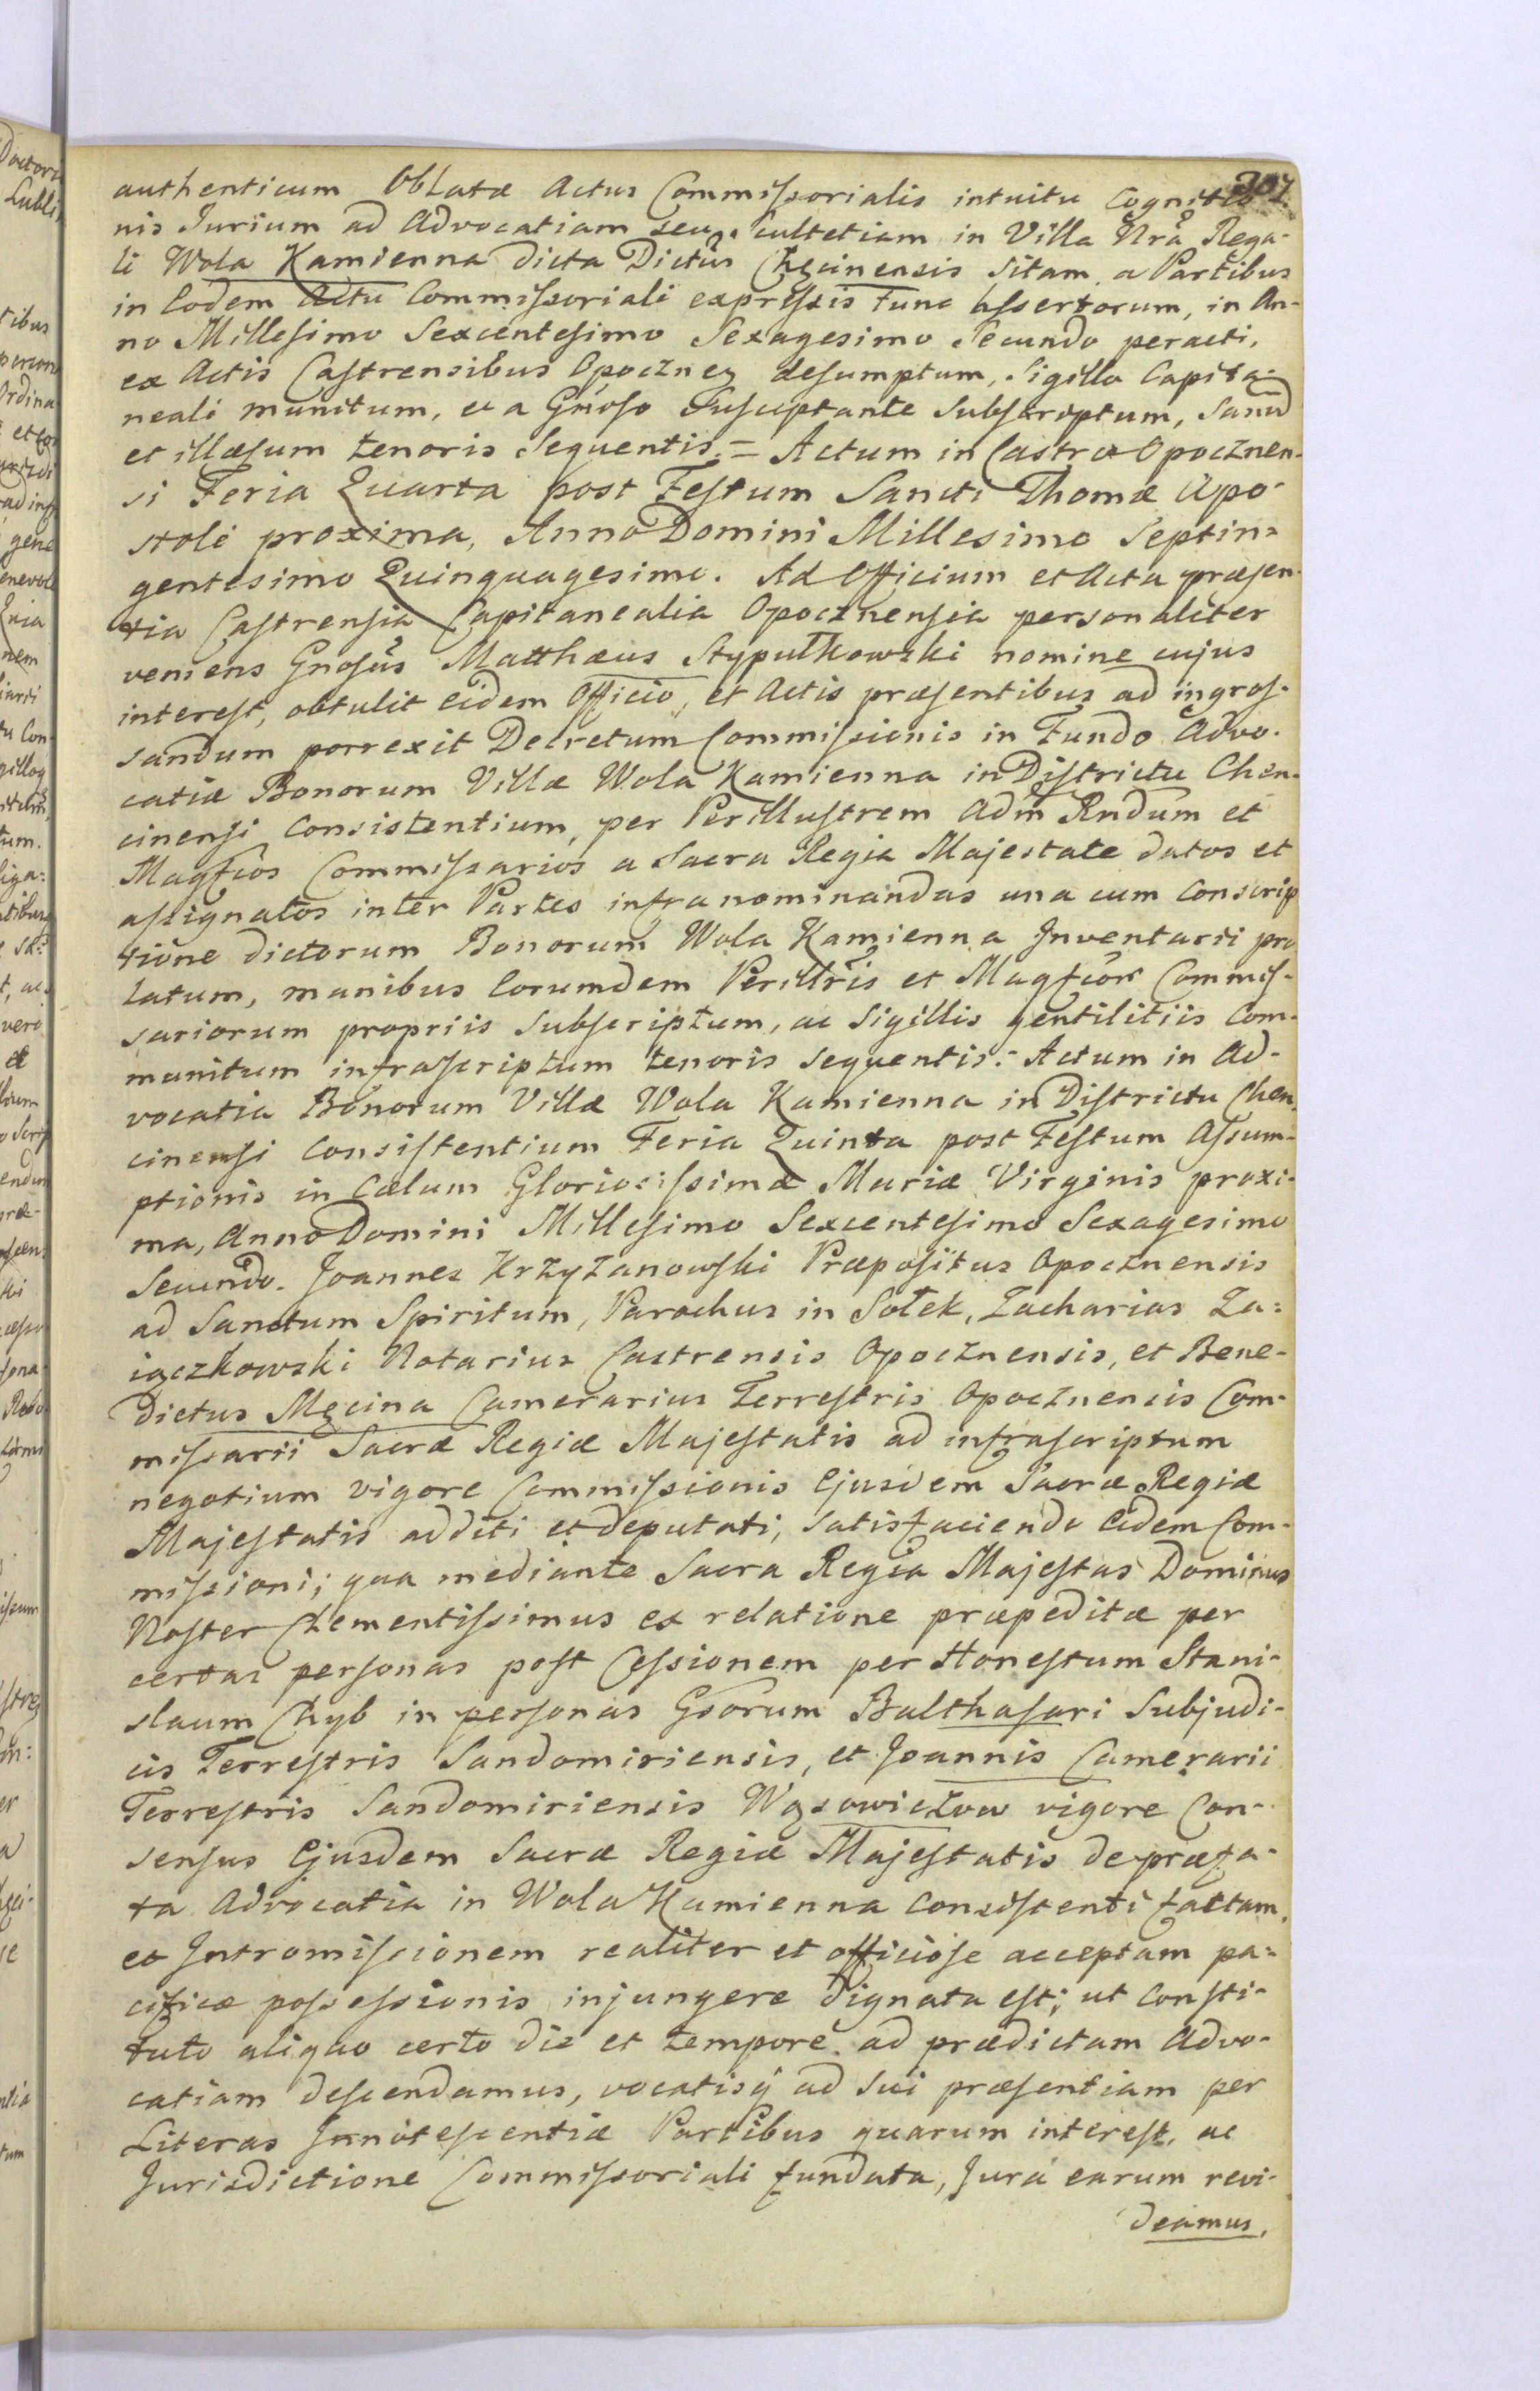 307
authenticum Oblatæ Actus Commissorialis intuitu Cognitio-
nis Jurium ad Advocatiam seu Scultetiam in Villa Nrâ Rega-
li Wola Kamienna dicta Dictûs Chęcinensis sitam a Partibus
in Eodem Actu Commissoriali expressis tunc assertorum, in An-
no Millesimo Sexcentesimo Sexagesimo Secundo peracti,
ex Actis Castrensibus Opoczney desumptum, Sigillo Capita-
neali munitum, et a Gñoso Susceptante Subscriptum, Sanũ
et illæsum tenoris Sequentis. = Actum in Castro Opocznen-
si Feria Quarta post Festum Sancti Thomæ Apo-
stoli proxima, Anno Domini Millesimo Septin-
gentesimo Quinquagesimo. Ad Officium et Acta præsen-
tia Castrensia Capitanealia Opocznensia personaliter
veniens Gnosûs Matthæus Stypułkowski nomine cujus
interest, obtulit eidem Officio, et Actis præsentibus ad ingros-
sandum porrexit Decretum Commissionis in Fundo Advo-
catiæ Bonorum Villæ Wola Kamienna in Districtu Chen-
cinensi Consistentium, per Perillustrem Adm̃ Rndum et
Magfcos Commissarios a Sacra Regia Majestate datos et
assignatos inter Partes infranominandas una cum Conscrip
tione dictorum Bonorum Wola Kamienna Inventarii pro
latum, manibus Eorumdem Perilltris et Magfcor Commis-
sariorum propriis Subscriptum, ac Sigillis gentilitiis Com-
munitum infrascriptum tenoris sequentis: Actum in Ad-
vocatia Bonorum Villæ Wola Kamienna in Districtu Chen-
cinensi Consistentium Feria Quinta post Festum Assum-
ptionis in Cælum Gloriosissimæ Mariæ Virginis proxi-
ma, Anno Domini Millesimo Sexcentesimo Sexagesimo
Secundo. Joannes Krzyżanowski Præpositus Opocznensis
ad Sanctum Spiritum, Parochus in Sołek, Zacharias Za-
iączkowski Notarius Castrensis Opocznensis, et Bene-
dictus Męcina Camerarius Terrestris Opocznensis Com-
missarii Sacræ Regiæ Majestatis ad infrascriptum
negotium vigore Commissionis Ejusdem Sacræ Regiæ
Majestatis additi et deputati, satisfaciendo Eidem Com-
missioni; qua mediante Sacra Regia Majestas Dominus
Noster Clementissimus ex relatione præpeditæ per
certas personas post Cessionem per Honestum Stani-
slaum Chyb in personas Gsorum Balthasari Subjudi-
cis Terrestris Sandomiriensis, et Joannis Camerarii
Terrestris Sandomiriensis Wąsowiczow vigore Con-
sensus Ejusdem Sacræ Regiæ Majestatis de præfa-
ta Advocatia in Wola Kamienna Consistenti factam,
et Intromissionem realiter et officiose acceptam pa-
cificæ possessionis injungere dignata est; ut Consti-
tuto aliquo certo die et tempore ad prædictam Advo-
catiam descendamus, vocatisq̃ ad Sui præsentiam per
Literas Innotescentiæ Partibus quarum interest, ac
Jurisdictione Commissoriali fundata, Jura earum revi-
deamus,